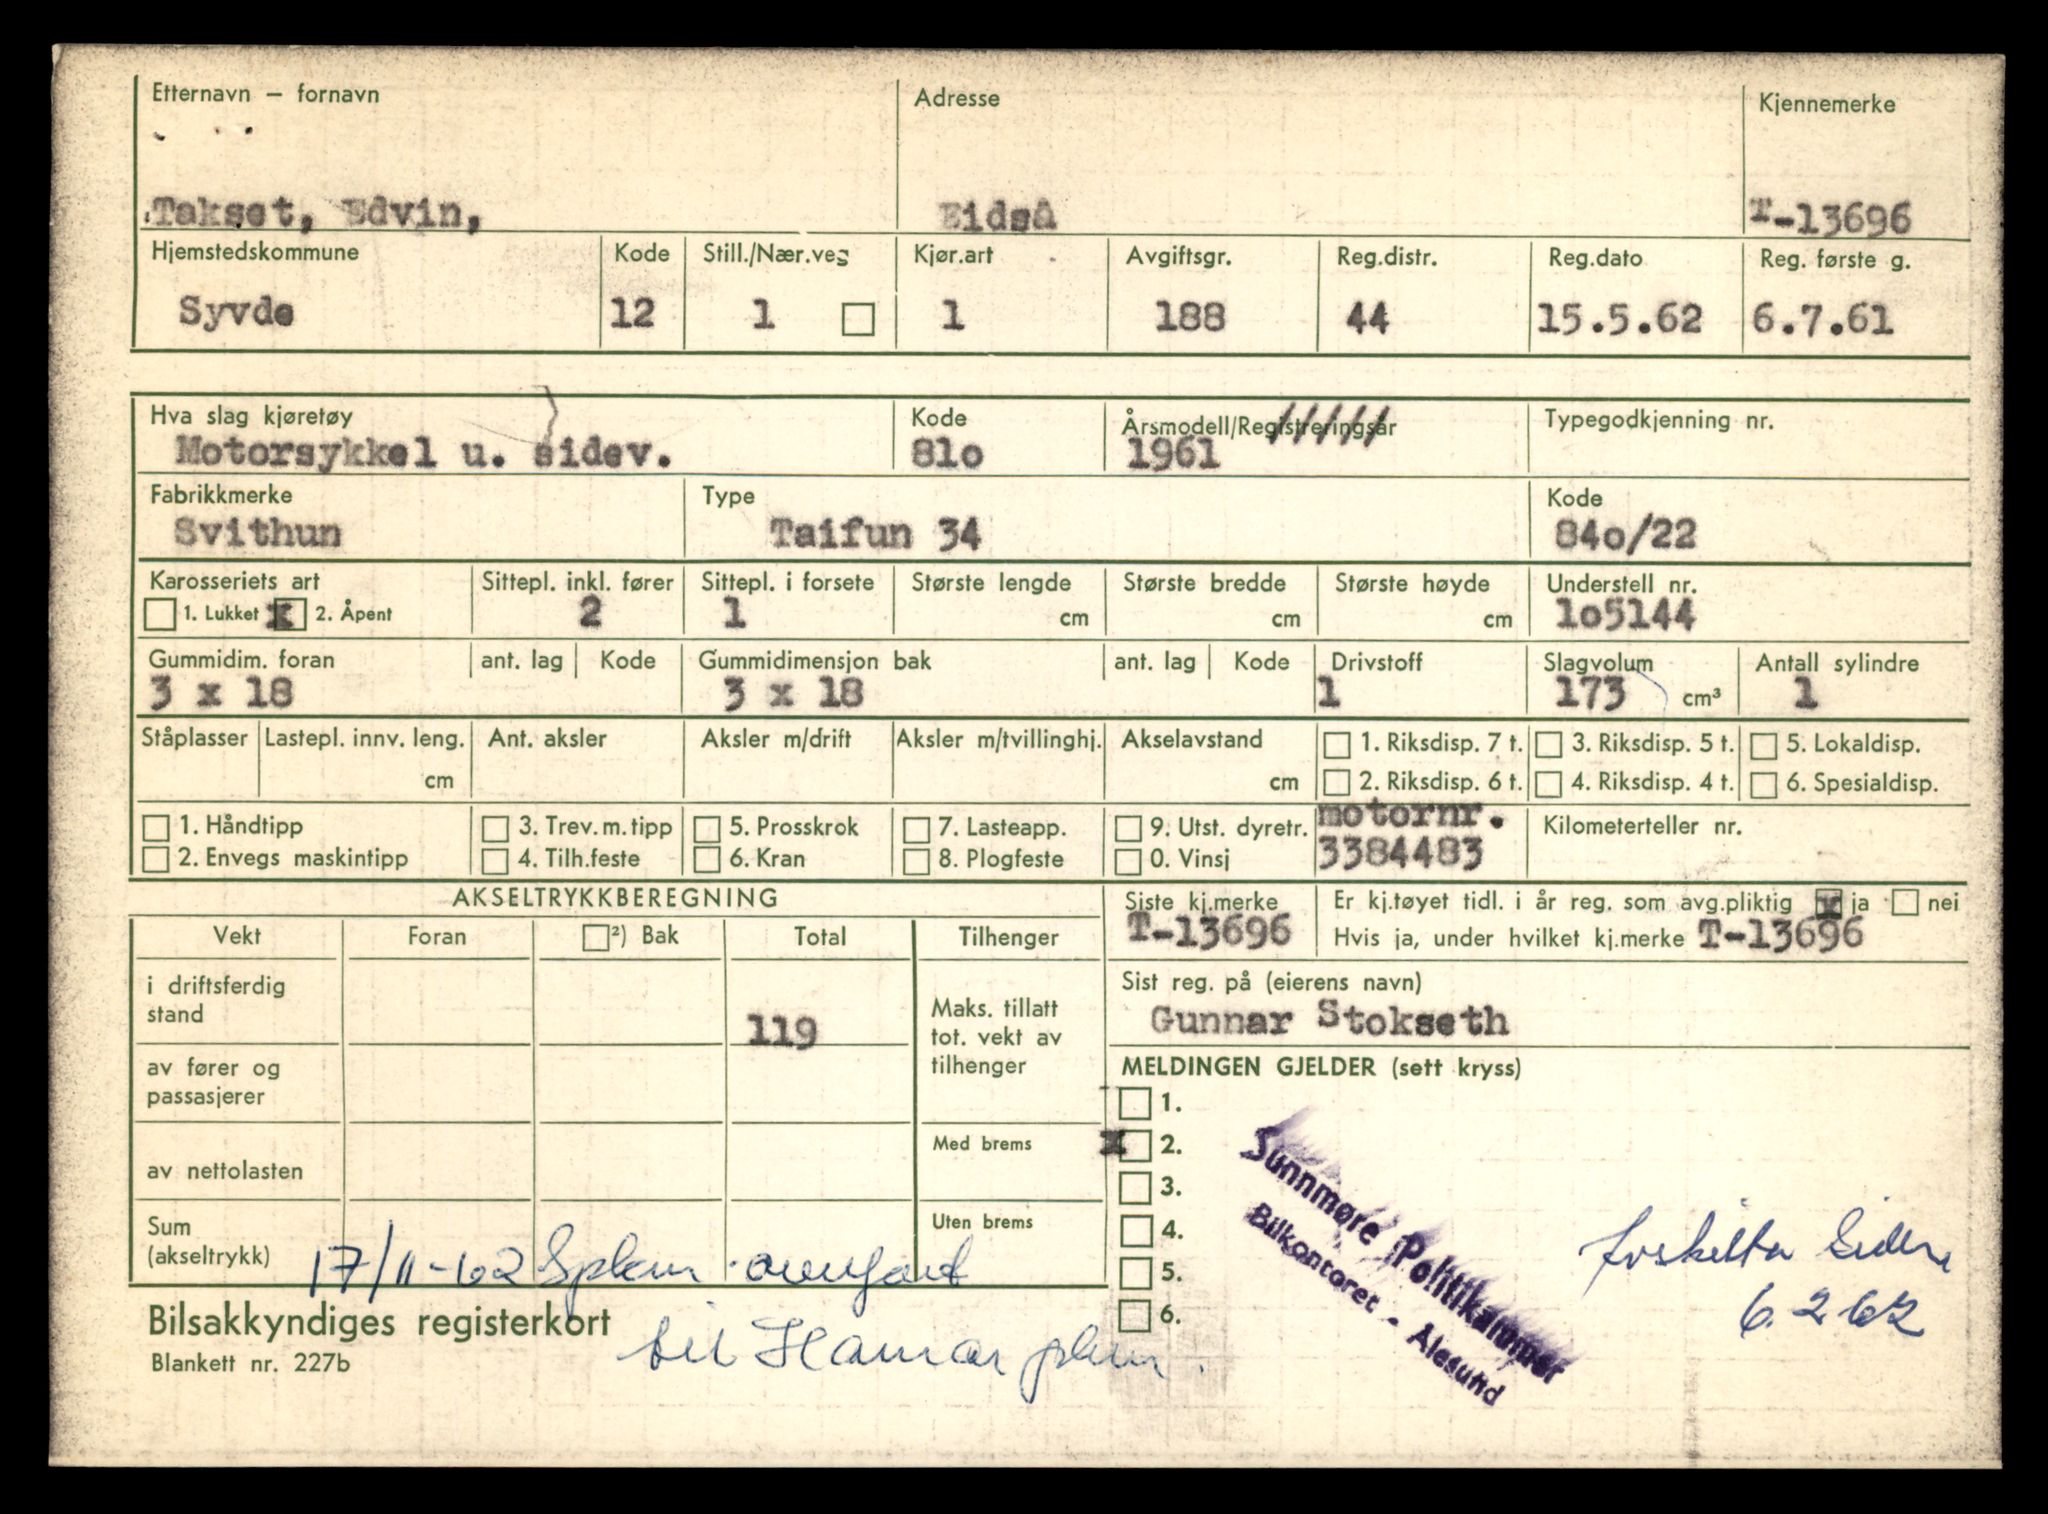 Etternavn — fornavn Adresse Kjennemerke
Takset, Edvin, Eidså T-13696
Hjemstedskommune Kode Still./Nær.veg Kjør.art Avgiftsgr. Reg.distr. Reg.dato Reg. første g.
Syvde 12 1 1 188 44 15.5.62 6.7.61
Hva slag kjøretøy Kode Årsmodell/Registreringsår Typegodkjenning nr.
Motorsykkel u. sidev. 81o 1961
Fabrikkmerke Type Kode
Svithun Taifun 34 84o/22
Karosseriets art Sittepl. inkl. fører Sittepl. i forsete Største lengde Største bredde Største høyde Understell nr.
1. Lukket x 2. Åpent 2 1 cm cm cm 1o5144
Gummidim. foran ant. lag Kode Gummidimensjon bak ant. lag Kode Drivstoff Slagvolum Antall sylindre
3 x 18 3 x 18 1 173 cm³ 1
Ståplasser Lastepl. innv. leng. Ant. aksler Aksler m/drift Aksler m/tvillinghj. Akselavstand 1. Riksdisp. 7 t. 3. Riksdisp. 5 t. 5. Lokaldisp.
cm cm 2. Riksdisp. 6 t. 4. Riksdisp. 4 t. 6. Spesialdisp.
1. Håndtipp 3. Trev. m. tipp 5. Prosskrok 7. Lasteapp. 9. Utst. dyretr. motornr. Kilometerteller nr.
2. Envegs maskintipp 4. Tilh.feste 6. Kran 8. Plogfeste 0. Vinsj 3384483
AKSELTRYKKBEREGNING
Vekt Foran ²) Bak Total Tilhenger
i driftsferdig stand 119
av fører og passasjerer
av nettolasten
Sum (akseltrykk)
Maks. tillatt tot. vekt av tilhenger
Med brems
Uten brems
Siste kj.merke Er kj.tøyet tidl. i år reg. som avg.pliktig x ja nei
T-13696 Hvis ja, under hvilket kj.merke T-13696
Sist reg. på (eierens navn)
Gunnar Stokseth
MELDINGEN GJELDER (sett kryss)
1.
x 2.
3.
4.
5.
6.
Sunnmøre Politikammer
Bilkontoret - Ålesund
6.2 62
17/11-62 Spkm. overført
til Hamar pkm.
Bilsakkyndiges registerkort
Blankett nr. 227b